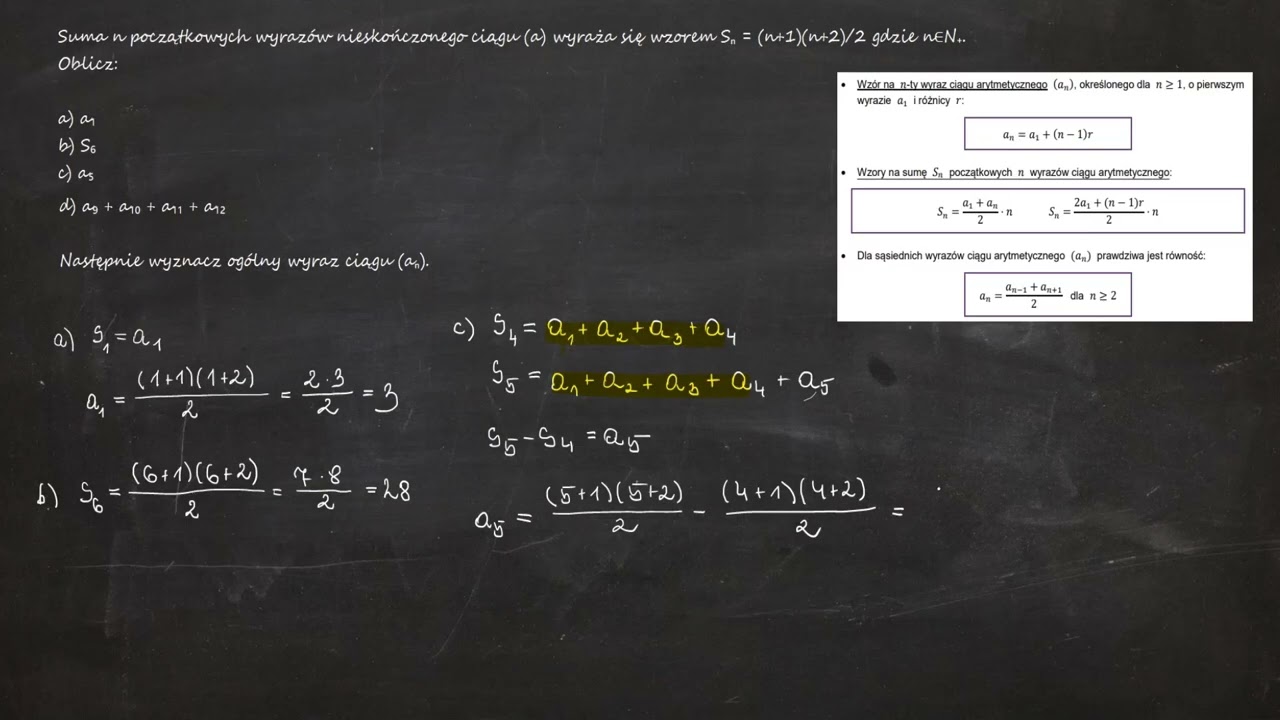 Suma n początkowych wyrazów nieskończonego ciągu (a) wyraża się wzorem Sₙ = (n+1)(n+2)/2 gdzie n∈N₊.
Oblicz:
a) a₁
b) S₆
c) a₅
d) a₉ + a₁₀ + a₁₁ + a₁₂
Następnie wyznacz ogólny wyraz ciągu (aₙ).
• Wzór na n-ty wyraz ciągu arytmetycznego (aₙ), określonego dla n ≥ 1, o pierwszym
wyrazie a₁ i różnicy r:
aₙ = a₁ + (n − 1)r
• Wzory na sumę Sₙ początkowych n wyrazów ciągu arytmetycznego:
Sₙ = (a₁ + aₙ)/2 · n  Sₙ = (2a₁ + (n − 1)r)/2 · n
• Dla sąsiednich wyrazów ciągu arytmetycznego (aₙ) prawdziwa jest równość:
aₙ = (aₙ₋₁ + aₙ₊₁)/2 dla n ≥ 2
a) S₁ = a₁
a₁ = (1+1)(1+2)/2 = 2·3/2 = 3
b) S₆ = (6+1)(6+2)/2 = 7·8/2 = 28
c) S₄ = a₁ + a₂ + a₃ + a₄
S₅ = a₁ + a₂ + a₃ + a₄ + a₅
S₅ − S₄ = a₅
a₅ = (5+1)(5+2)/2 − (4+1)(4+2)/2 =